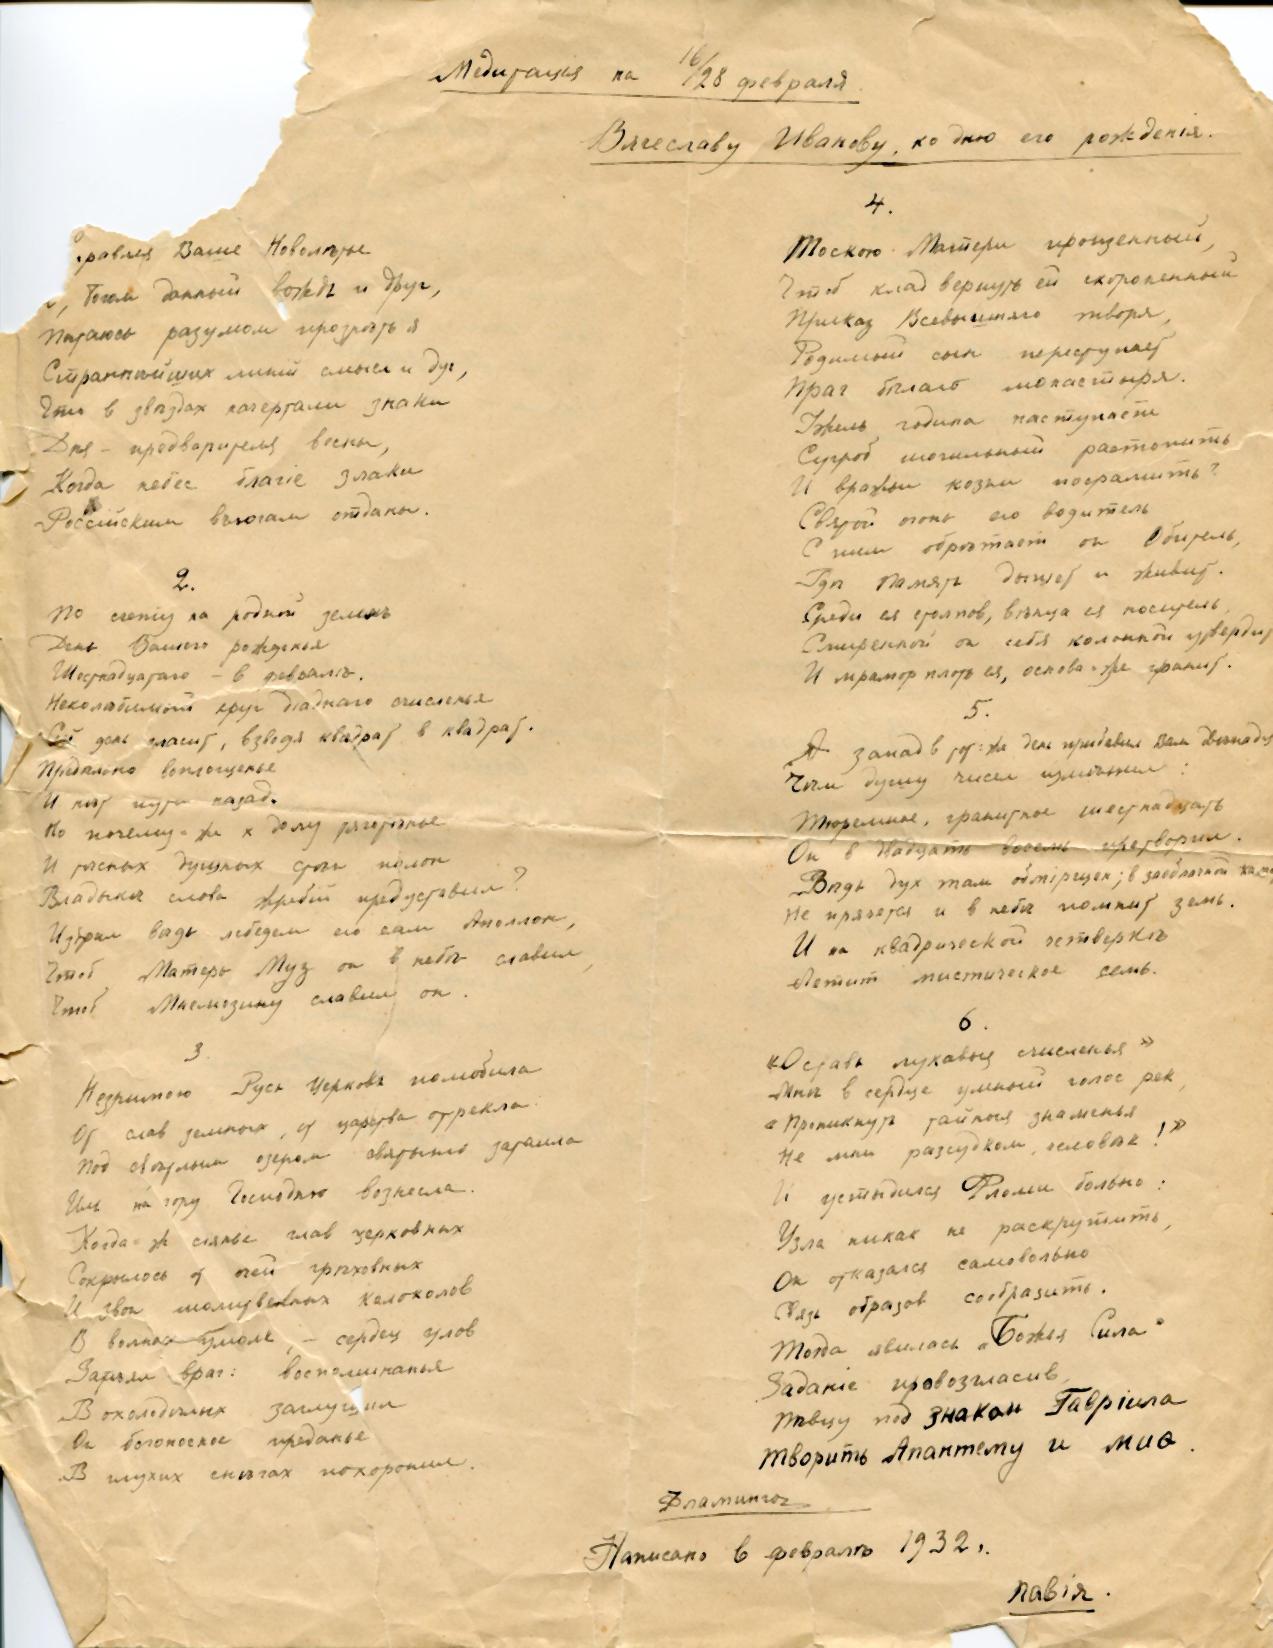 Медитація на 16/28 февраля
Вячеславу Иванову, ко дню его рожденія.
Ваше Новолѣтье
Богом данный вождь и друг,
Пытаюсь разумом прозрѣть я
Страннѣйших линій смысл и дуг,
Что в звѣздах начертали знаки
Дня – предварителя весны,
Когда небес благіе злаки
Россійским вьюгам отданы.
2.
По счету на родной землѣ
День Вашего рожденья
Шестнадцатаго – в февралѣ.
Неколебимый круг счисленья
Сей день гласит, взводя квадрат в квадрат.
Предѣльно воплощенье
И нѣт пути назад.
Но почему-же к дому тяготѣнье
И тѣсных душных стѣн полон
Владыкѣ слова жребій предуставил?
Избрал вѣдь лебедем его сам Аполлон,
Чтоб Матерь Муз он в небѣ славил,
Чтоб Мнемозину славил он.
3
Незримою Русь Церковь полюбила
От слав земных, от царства отрекла
Под свѣтлым озером святыню затаила
Иль на гору Господню вознесла.
Когда-ж сіянье глав церковных
Сокрылось от очей грѣховных
И звон молитвенных колоколов
В волнах умолк, – сердец улов
Затѣял враг: воспоминанья
В охолодѣлых заглушил
Он богоносное преданье
В глухих снѣгах похоронил.
4.
Тоскою Матери прощенный,
Чтоб клад вернуть ей схороненный
Приказ Всевышняго творя,
Родимый сын переступает
Праг бѣлаго монастыря.
Ужель година наступает
Сугроб могильный растопить
И вражьи козни посрамить?
Святой огонь его водитель
С ним обрѣтает он Обитель,
Гдѣ Память дышет и живит.
Среди ея столпов, вѣнца ея носитель,
Смиренной он себя колонной утвердит
И мрамор плоть ея, основа-же гранит.
5.
А запад в тот-же день прибавил Вам
Чѣм душу чисел измѣнил:
Тюремное, гранитное шестнадцать
Он в двадцать восемь претворил.
Вѣдь дух там обмірщен; в заоблачной
Не прячется и в небѣ помнит земь.
И на квадрической четверкѣ
Летит мистическое семь.
6.
«Оставь лукавыя счисленья»
Мнѣ в сердце умный голос рек,
«Проникнуть тайныя знаменья
Не мни разсудком, человѣк!»
И устыдился больно:
Узла никак не раскрутить,
Он отказался самовольно
Связь образов сообразить.
Тогда явилась „Божья Сила"
Заданіе провозгласив,
Пѣвцу под знаком Гавріила
Творить Апантему и миѳ.
Фламинго
Написано в февралѣ 1932.
Павія.